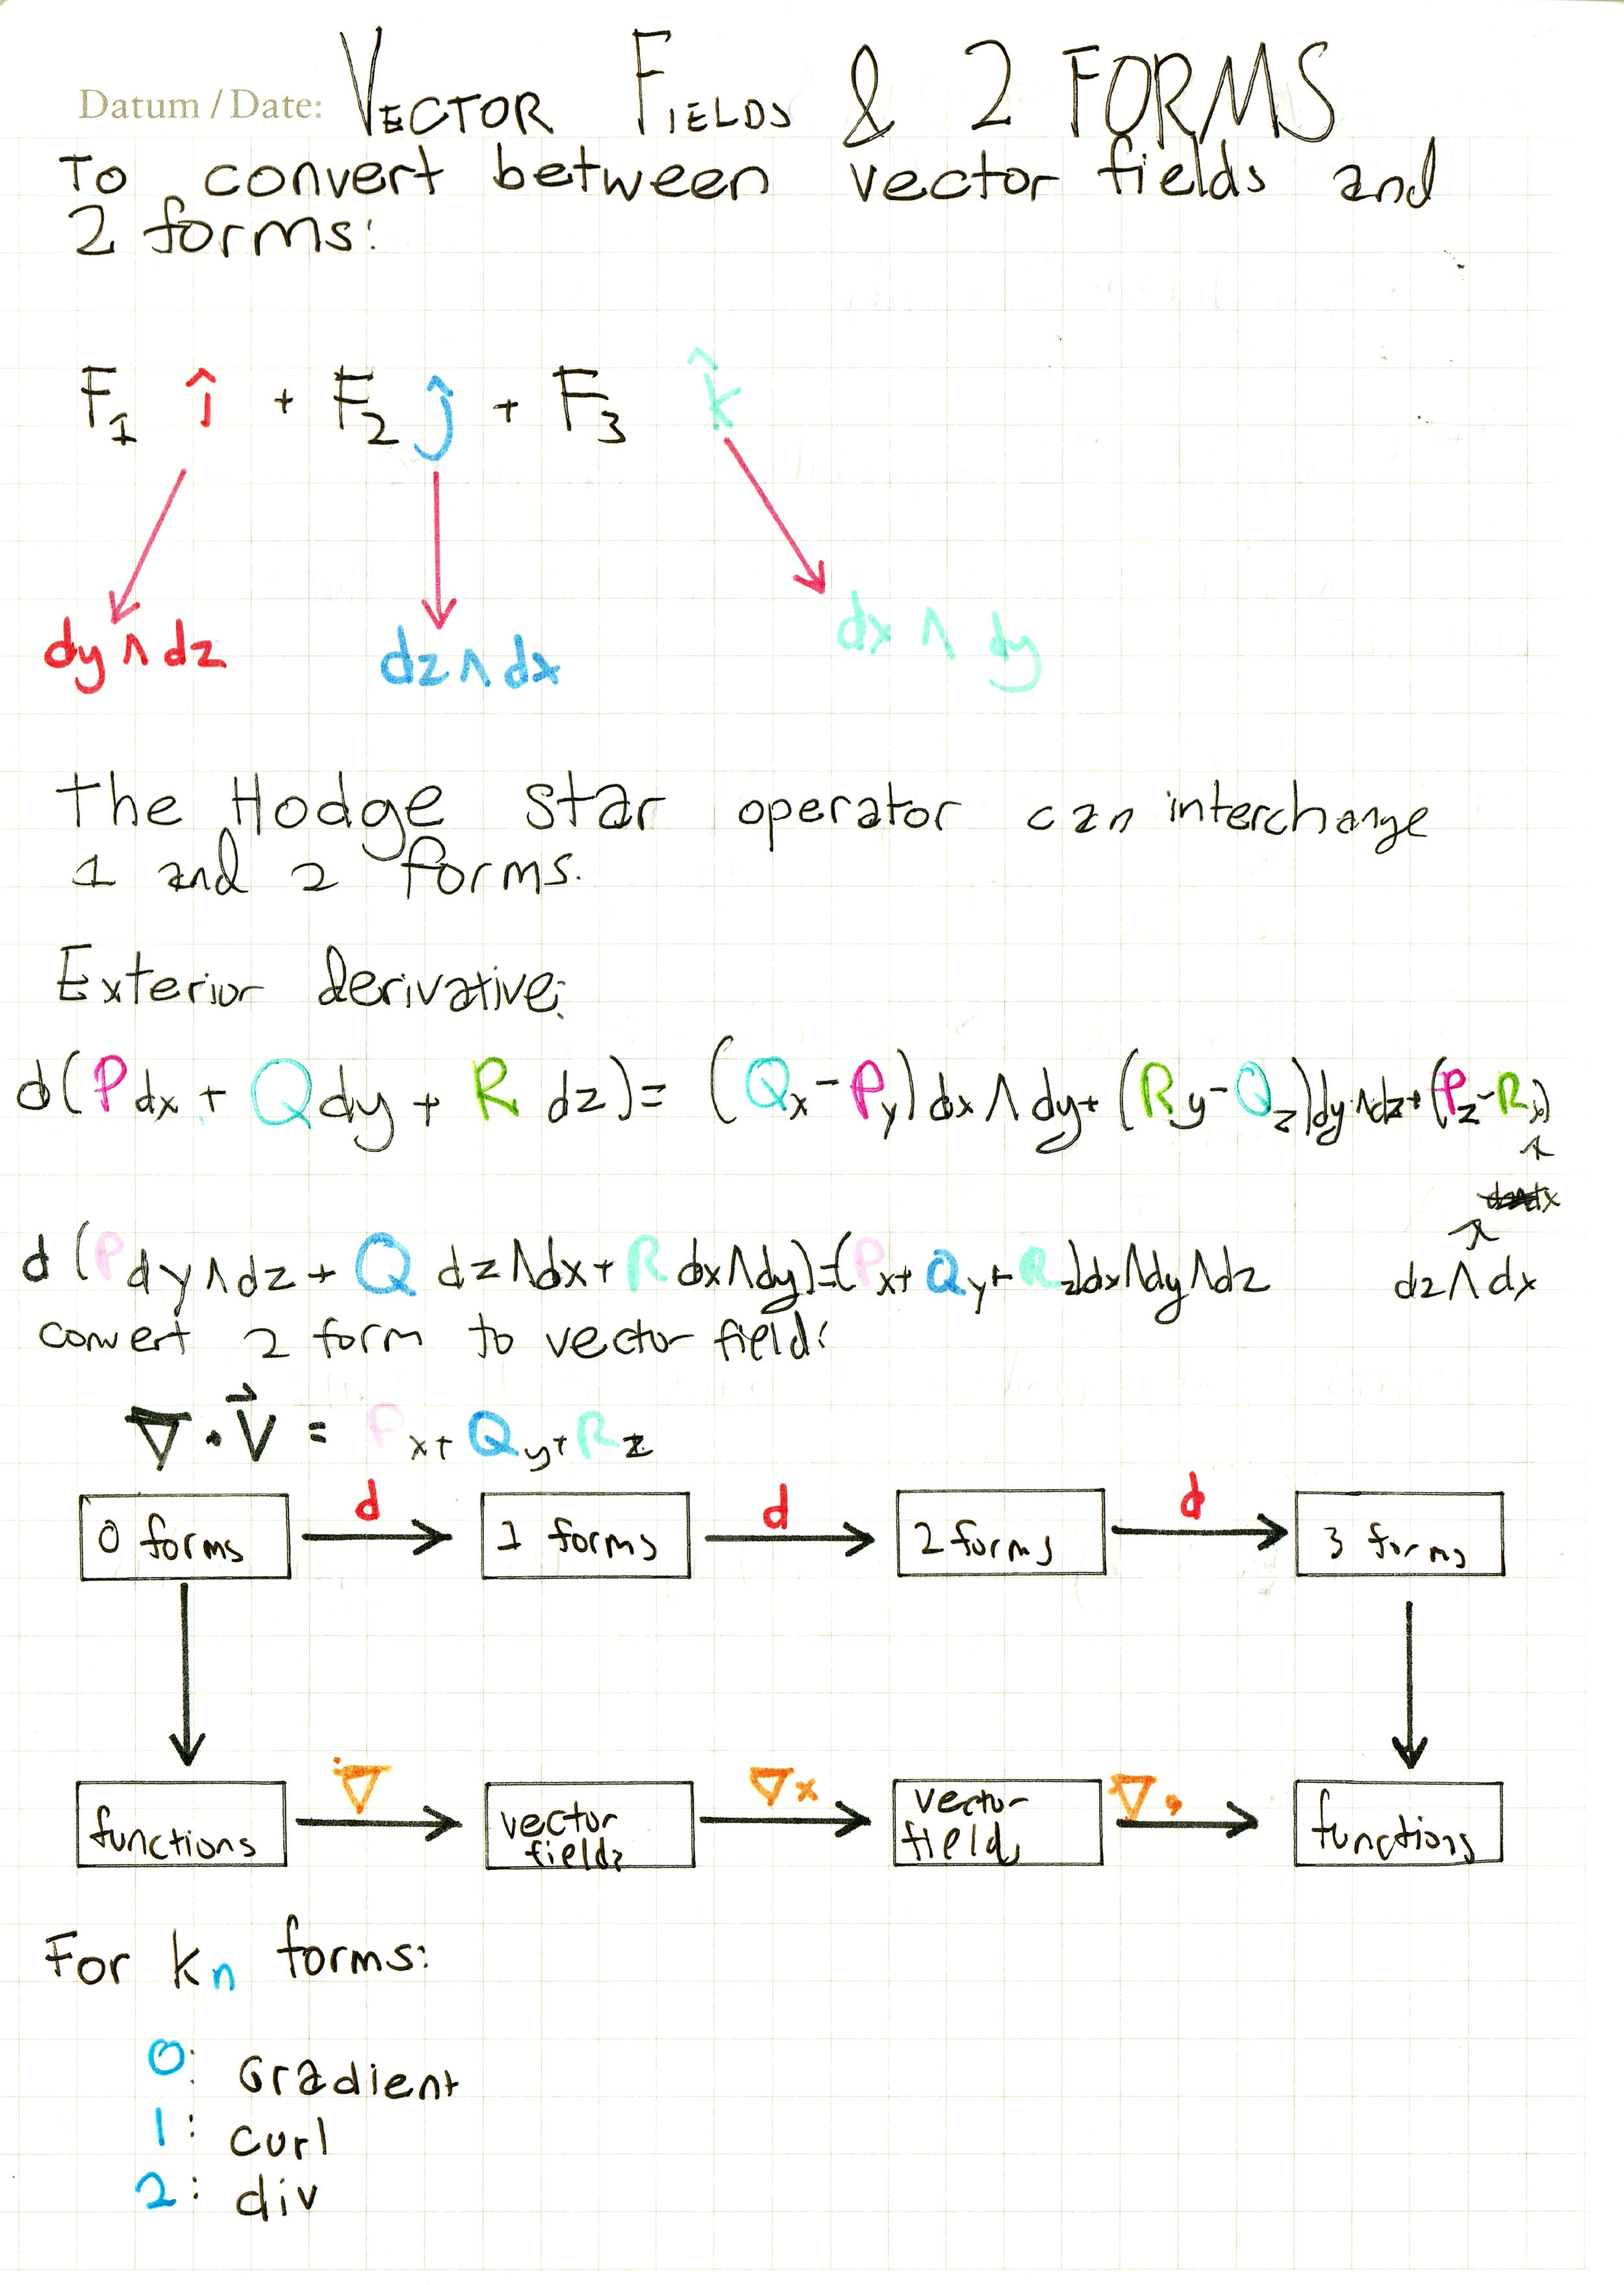 Datum / Date: VECTOR FIELDS & 2 FORMS
To convert between vector fields and
2 forms:
F₁ î + F₂ ĵ + F₃ k̂
dy ∧ dz dz ∧ dx dx ∧ dy
The Hodge star operator can interchange
1 and 2 forms.
Exterior derivative:
d(Pdx + Qdy + R dz) = (Qx - Py) dx ∧ dy + (Ry - Qz) dy ∧ dz + (Pz - Rx)
dz ∧ dx
d (P dy ∧ dz + Q dz ∧ dx + R dx ∧ dy) = (Px + Qy + Rz) dx ∧ dy ∧ dz
convert 2 form to vector field:
∇ · V⃗ = Px + Qy + Rz
d d d
0 forms 1 forms 2 forms 3 forms
∇ ∇x ∇·
functions vector fields vector fields functions
For kn forms:
0: Gradient
1: curl
2: div